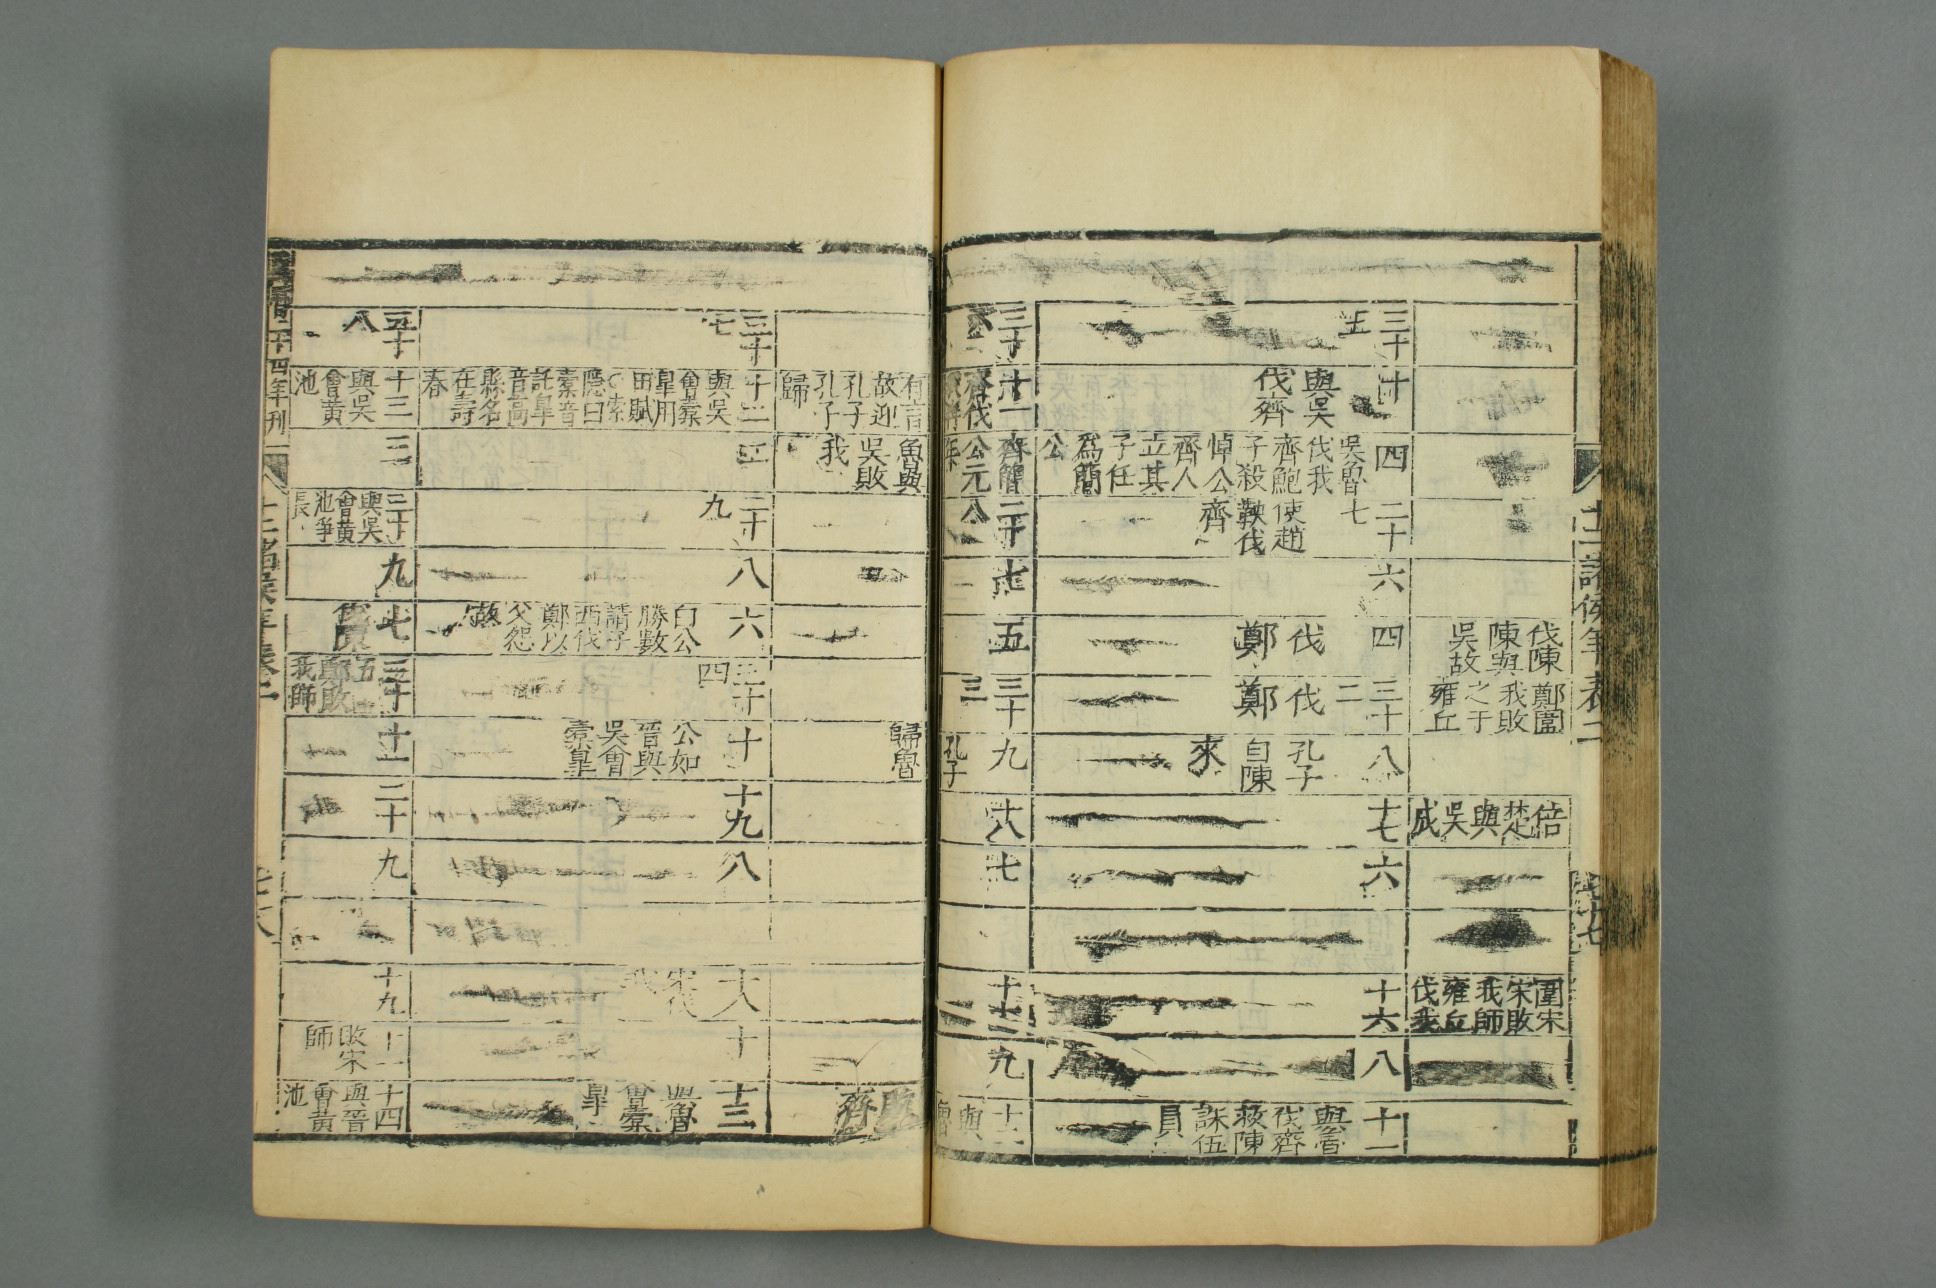 伐陳
陳與
吳故
鄭圍
我敗
之于
雍丘
倍
楚
與
吳
成
圍宋
宋敗
我師
雍丘
伐我
三十
五
十
與吳
伐齊
四
吳魯
伐我
齊鮑
子殺
悼公
齊人
立其
子任
爲簡
公
二十
七
使趙
鞅伐
齊
六
四
伐
鄭
三十
二
伐
鄭
八
孔子
自陳
來
十七
六
十六
八
十一
與魯
伐齊
救陳
誅伍
員
三十
六
十一
齊伐
齊簡
公元
年
二十
八
七
五
三十
三
九
孔子
十八
七
十七
九
十二
與
魯
有言
故迎
孔子
孔子
歸
魯與
吳敗
我
歸魯
敗
齊
三十
七
十二
與吳
會橐
皋用
田賦
索
隱曰
橐音
託皋
音高
縣名
在壽
春
三
二十
九
八
六
白公
勝數
請子
西伐
鄭以
父怨
故
三十
四
十
公如
晉與
吳會
橐皋
十九
八
十八
宋伐
我
十
十三
與魯
會橐
皋
三十
八
十三
與吳
會黃
池
三
三十
與吳
會黃
池爭
長
九
七
伐陳
三十
五
鄭敗
我師
十一
二十
九
十九
十一
敗宋
師
十四
與晉
會黃
池